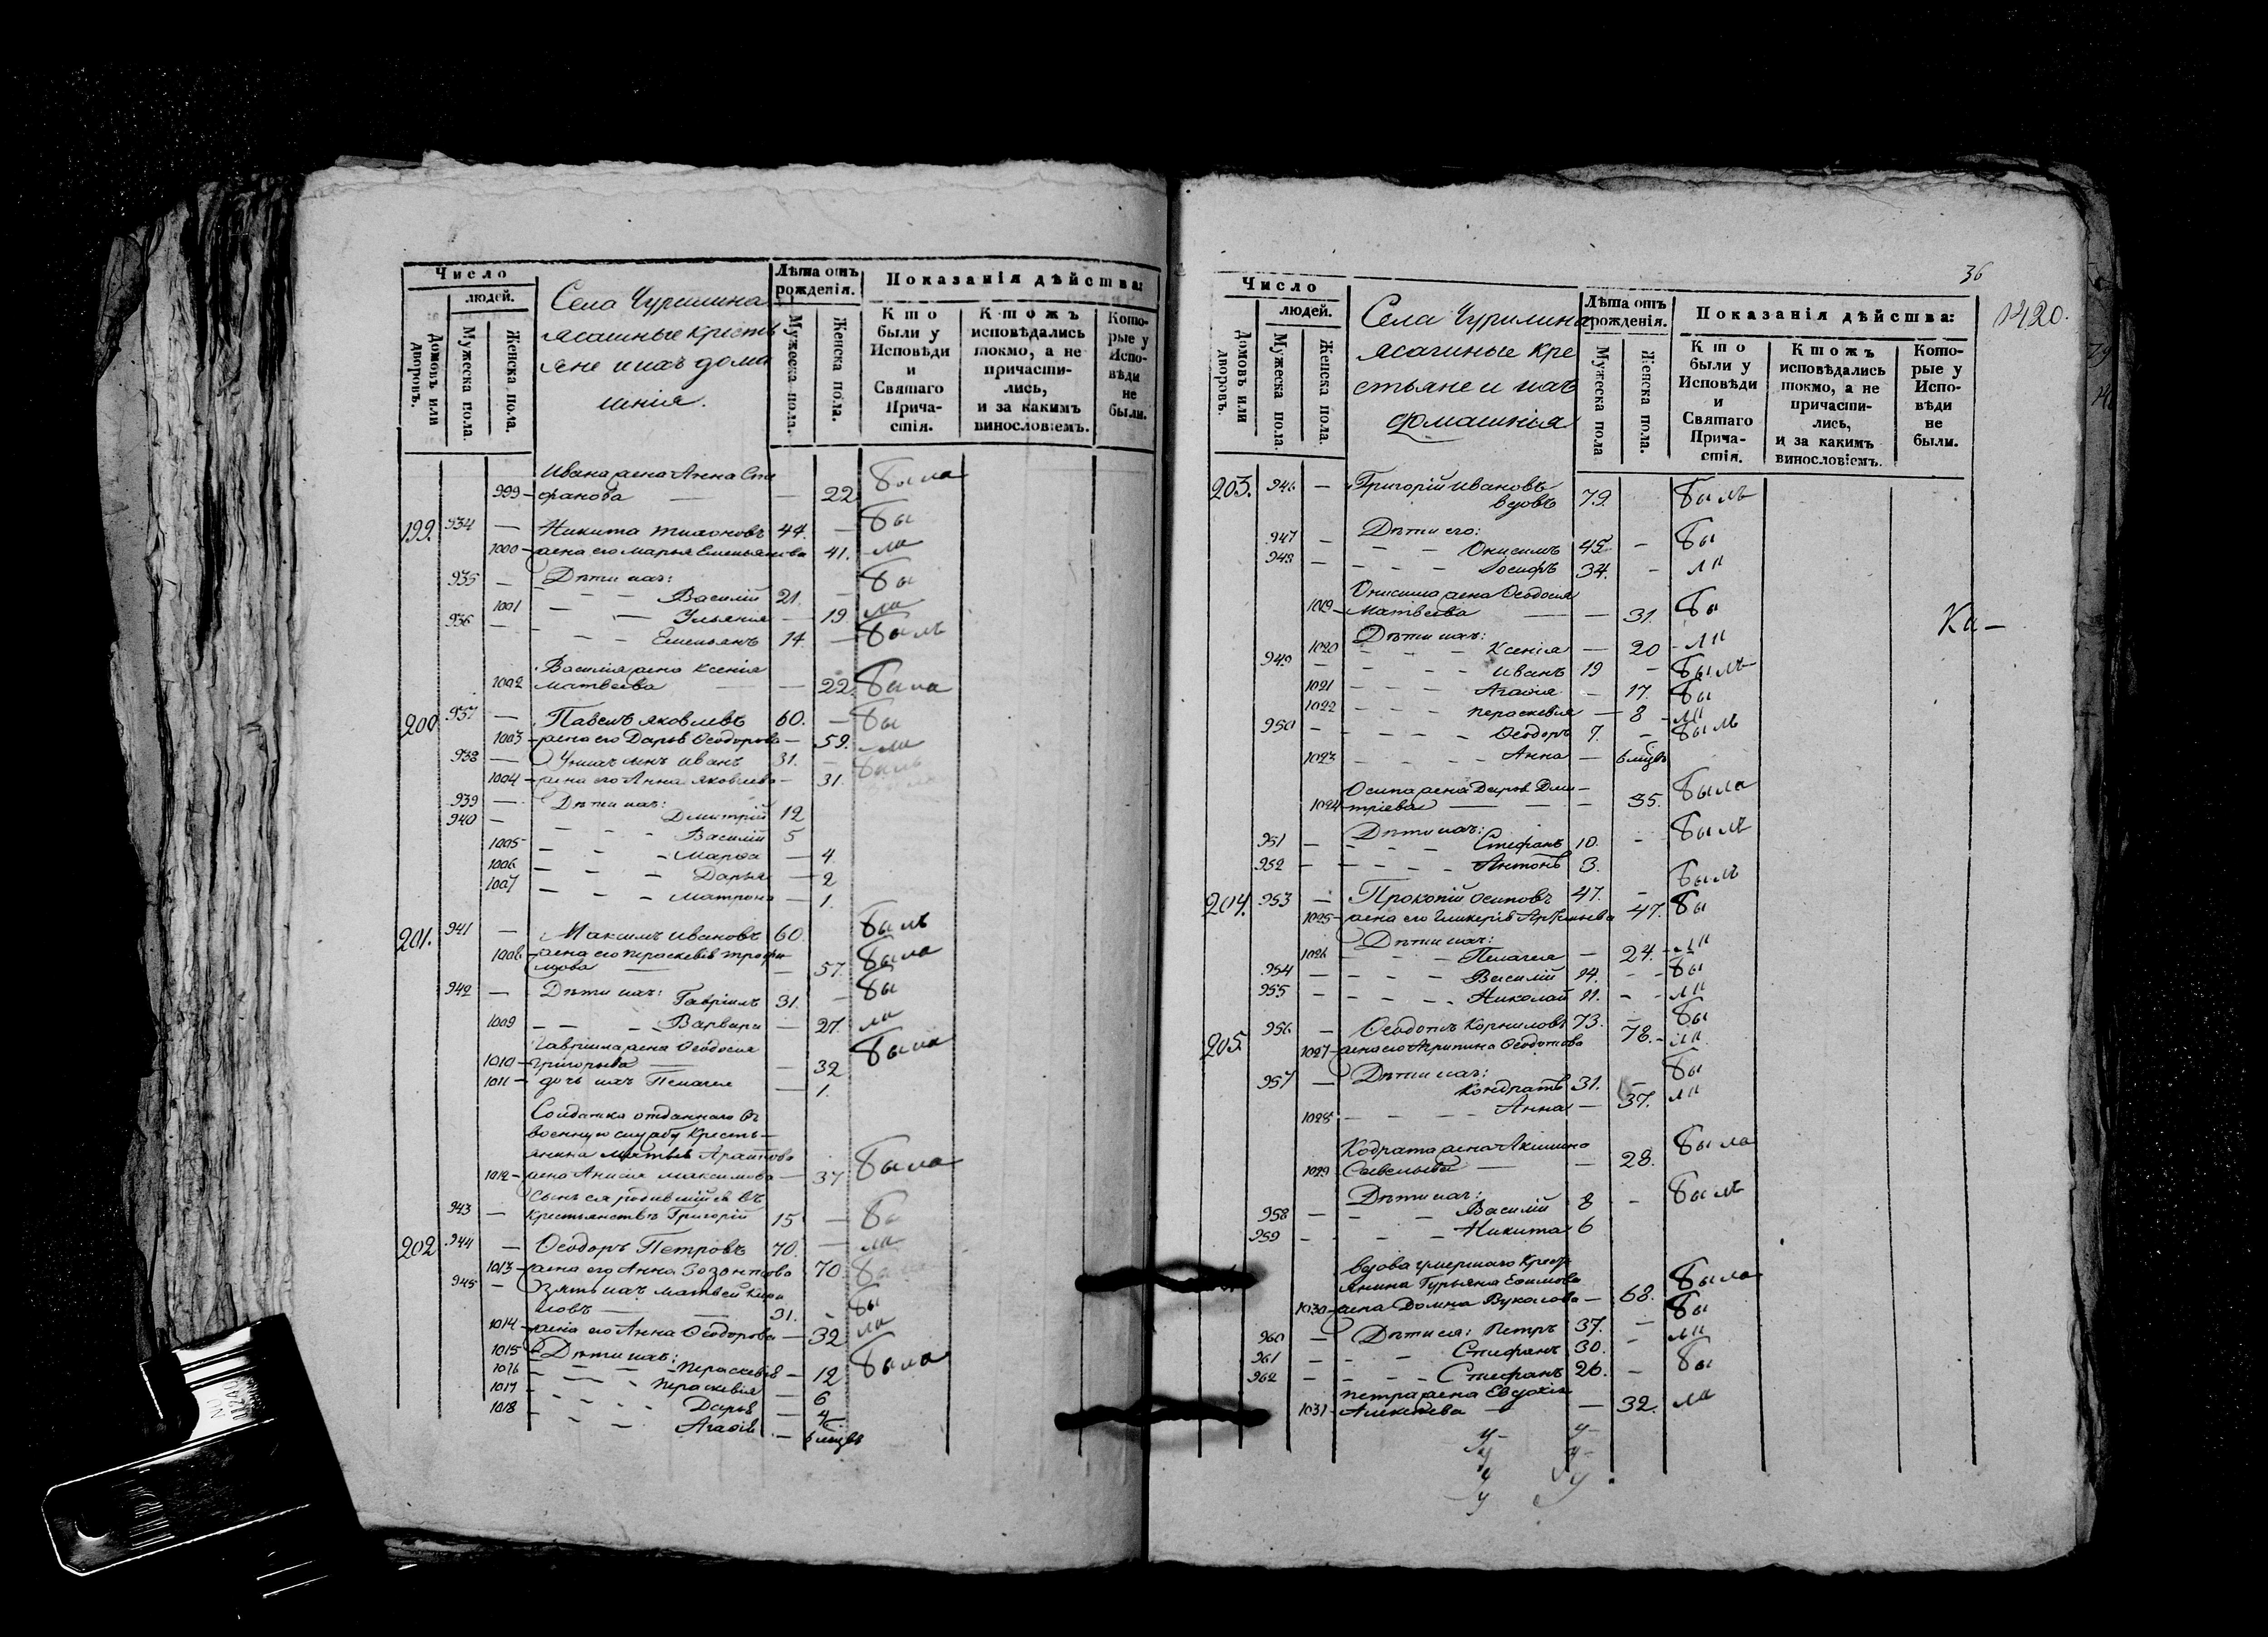 Число
людей.
Домовъ или дворовъ.
Мужеска пола.
Женска пола.
Села Чурилина
ясашные кресть
яне и ихъ дома
шнія.
Лѣта отъ рожденія.
Мужеска пола.
Женска пола.
Показанія дѣйства:
Кто были у Исповѣди и Святаго Прича-стія.
Ктожъ исповѣдались токмо, а не причасти-лись, и за какимъ винословіемъ.
Кото-рые у Испо-вѣди не были.
Ивана жена Анна Сте
999 – фанова — — 22 была
199. 934 — Никита Тихоновъ 44. — бы
1000 – жена его Марья Емельянова 41. – ли
Дѣти ихъ:
935 — Василій 21. — бы
1001 — Ульянія — 19 ли
936 — Емельянъ 14 — былъ
Василія жена Ксенія
1002 Матвеева — — 22 была
200 937 — Павелъ Яковлевъ 60. — бы
1003 – жена его Дарья Ѳеодорова — 59. – ли
938 — У нихъ сынъ Иванъ 31. — былъ
1004 – жена его Анна Яковлева — 31. была
Дѣти ихъ:
939 — Дмитрій 12
940 — Василій 5
1005 — Марѳа — 4
1006 — Дарья — 2
1007 — Матрона — 1.
201. 941 — Максимъ Ивановъ 60. былъ
1008 – жена его Пераскевія Трофи
мова — — 57. была
942 — Дѣти ихъ: Гавріилъ 31. — бы
1009 — Варвара — 27. ли
Гавріила жена Ѳеодосія
1010 – Григорьева — — 32 была
1011 – дочь ихъ Пелагея — 1.
Солдатка отданнаго въ
военную службу Кресть-
янина
1012 – жена Анисія Максимова — 37 была
Сынъ ея родившійся въ
943 — крестьянствѣ Григорій 15 — бы
202 944 — Ѳеодоръ Петровъ 70. — ли
1013 – жена его Анна Созонтова 70. была
945 — Зять ихъ Матвей Кири
ловъ — — 31. — бы
1014 – жена его Анна Ѳеодорова — 32 ли
Дѣти ихъ:
1015 Пераскевія — 12 была
1016 Пераскевія — 6
1017 Дарья — 4
1018 Агаѳія — 6 мцвъ
36
1420.
Число
людей.
Домовъ или дворовъ.
Мужеска пола.
Женска пола.
Села Чурилина
ясашные кре
стьяне и ихъ
домашнія
Лѣта отъ рожденія.
Мужеска пола
Женска пола.
Показанія дѣйства:
Кто были у Исповѣди и Святаго Прича-стія.
Ктожъ исповѣдались токмо, а не причасти-лись, и за какимъ винословіемъ.
Кото-рые у Испо-вѣди не были.
203. 946 — Григорій Ивановъ
вдовъ 79. былъ
Дѣти его:
947 — Онисимъ 45 — бы
948 — Іосифъ 34. — ли
Онисима жена Ѳеодосія
1019 – Матвеева — — 31. бы
Дѣти ихъ:
1020 Ксенія — 20 – ли
949 — Иванъ 19 — былъ
1021 — Агаѳія — 17. бы
1022 — Пераскевія — 8 – ли
950 — Ѳеодоръ 7. — былъ
1023 — Анна — 6 мцвъ
Ки –
Осипа жена Дарья Дми-
1024 – тріева — — 35. была
Дѣти ихъ:
951 — Стефанъ 10. — былъ
952 — Антонъ 3.
204. 953 — Прокопій Осиповъ 47. — былъ
1025 – жена его Гликерія Артемьева 47. бы
Дѣти ихъ:
1026 — Пелагея — 24. – ли
954 — Василій 14. — бы
955 — Николай 11. — ли
205. 956 — Ѳеодотъ Корниловъ 73. — бы
1027 – жена его Агрипина Ѳеодотова 78. – ли
Дѣти ихъ:
957 — Кондратъ 31. — бы
1028 — Анна — 37. ли
Кодрата жена Акилина
1029 Савельева — — 28. была
Дѣти ихъ:
958 — Василій 8 — былъ
959 — Никита 6
вдова умершаго Крест
янина Гурьяна Ефимова
1030 – жена Домна Вуколова — 68. была
960 — Дѣти ея: Петръ 37. — бы
961 — Стефанъ 30. — ли
962 — Стефанъ 26. — бы
Петра жена Евдокія
1031 – Алексѣева — — 32. ли